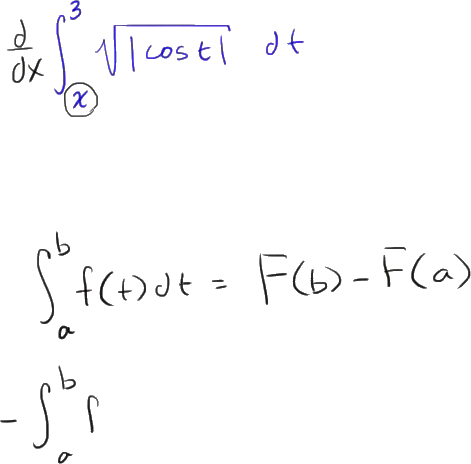 d/dx ∫_x^3 √|cos t| dt
∫_a^b f(t) dt = F(b) - F(a)
- ∫_a^b f